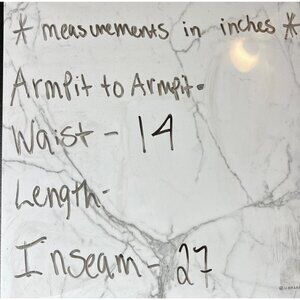 * measurements in inches *
Armpit to Armpit-
Waist - 14
Length-
Inseam - 27